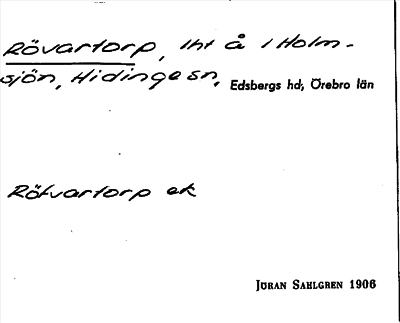 Rövartorp, lht å i Holm-
sjön, Hidinge sn, Edsbergs hd, Örebro län
Rötvartorp ek
JÖRAN SAHLGREN 1906